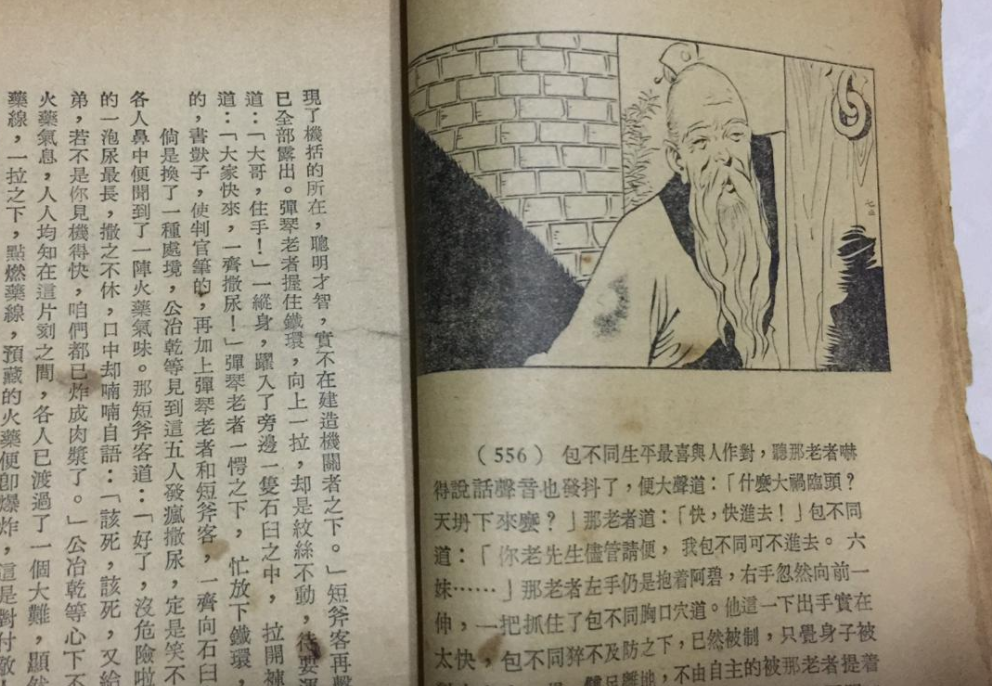 （556） 包不同生平最喜與人作對，聽那老者嚇
得說話聲音也發抖了，便大聲道：「什麼大禍臨頭？
天坍下來麼？」那老者道：「快，快進去！」包不同
道：「你老先生儘管請便，我包不同可不進去。六
妹……」那老者左手仍是抱着阿碧，右手忽然向前一
伸，一把抓住了包不同胸口穴道。他這一下出手實在
太快，包不同猝不及防之下，已然被制，只覺身子被
足離地，不由自主的被那老者提着
現了機括的所在，聰明才智，實不在建造機關者之下。」短斧客再
已全部露出。彈琴老者握住鐵環，向上一拉，却是紋絲不動，待要
道：「大哥，住手！」一縱身，躍入了旁邊一隻石臼之中，拉開褲
道：「大家快來，一齊撒尿！」彈琴老者一愕之下，忙放下鐵環，
的，書獃子，使判官筆的，再加上彈琴老者和短斧客，一齊向石臼
倘是換了一種處境，公冶乾等見到這五人發瘋撒尿，定是笑不
各人鼻中便聞到了一陣火藥氣味。那短斧客道：「好了，沒危險啦
的一泡尿最長，撒之不休，口中却喃喃自語：「該死，該死，又給
弟，若不是你見機得快，咱們都已炸成肉漿了。」公冶乾等心下不
火藥氣息，人人均知在這片刻之間，各人已渡過了一個大難，顯然
藥線，一拉之下，點燃藥線，預藏的火藥便卽爆炸，這是對付敵